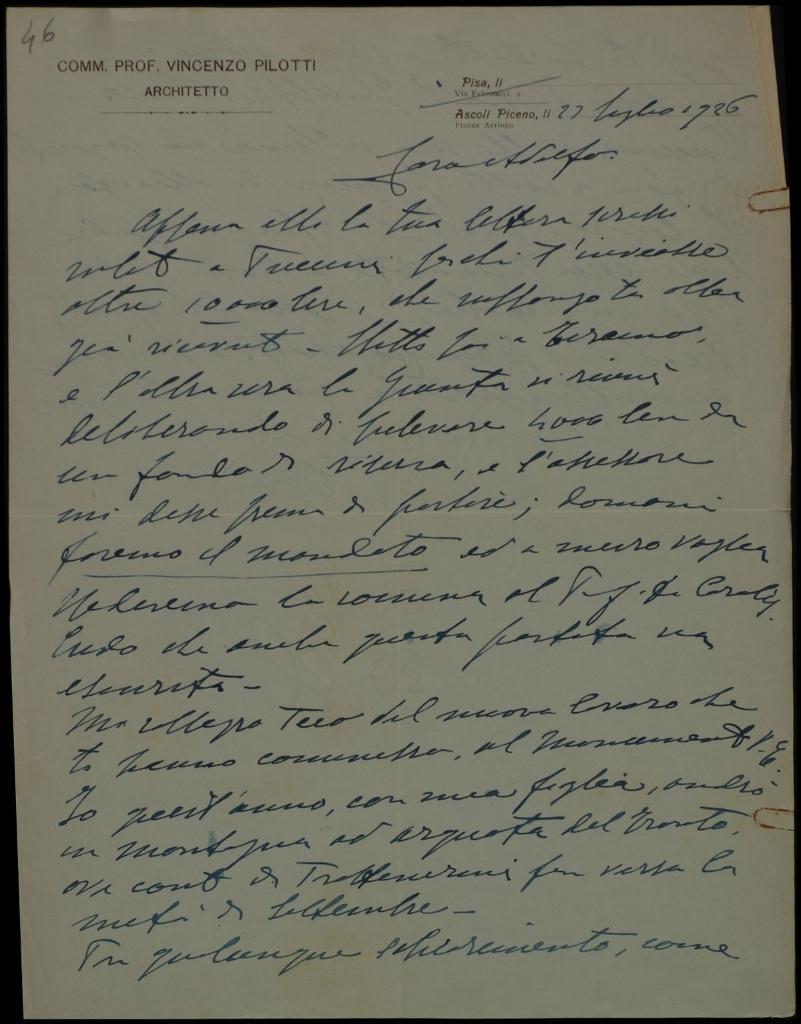 46
COMM. PROF. VINCENZO PILOTTI
ARCHITETTO
Pisa, li
Via Fibonacci, 4
Ascoli Piceno, li 27 luglio 1926
Piazza Arringo
Caro Adolfo.
Appena ebbi la tua lettera scrissi
subito a perchè t'inviasse
altre 10000 lire, che suppongo tu abbia
già ricevuto - poi a Teramo,
e l'altra sera la Giunta si riunì
deliberando di prelevare 4000 lire da
un fondo di riserva, e l'assessore
mi disse prima di partire; domani
faremo il mandato ed a mezzo vaglia
la somma al Prof. De Carolis.
Credo che anche questa partita sia
esaurita -
Mi rallegro teco del nuovo lavoro che
ti hanno commesso, al Monumento V. E.
Io quest'anno, con mia figlia, andrò
in montagna ad Arquata del Tronto,
ove conto di trattenermi fin verso la
metà di settembre -
Per qualunque schiarimento, come